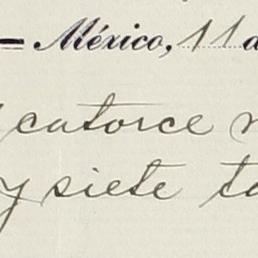 — México, 11 d
catorce
y siete